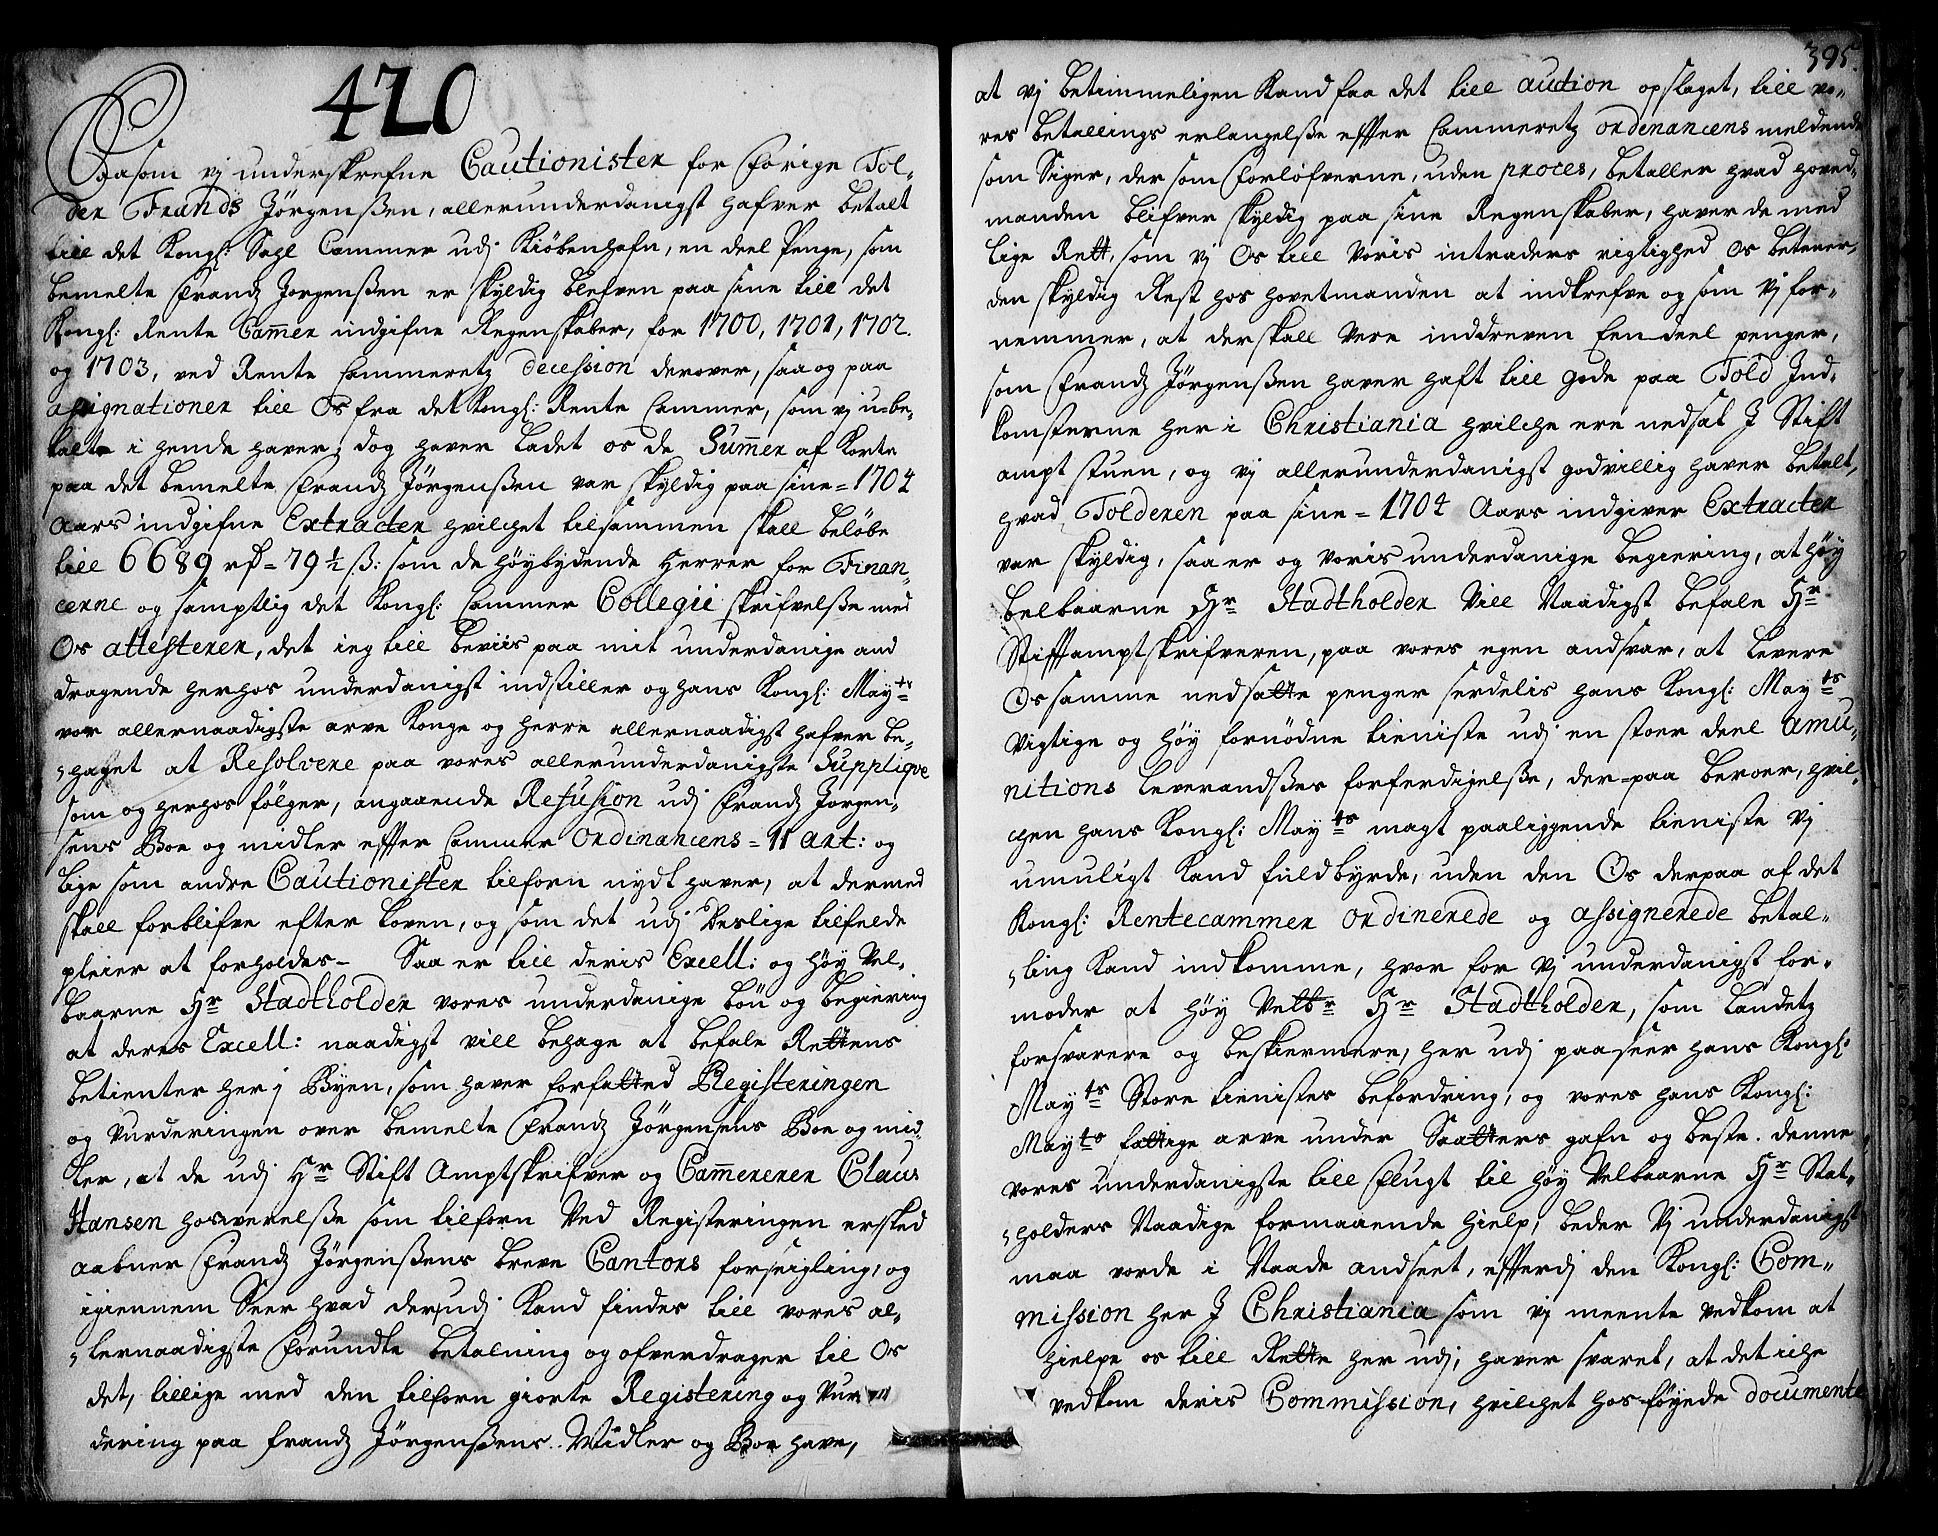 420
Saasom vj underskrefne Cautionister for forige Tol-
der Frands Jörgenßen, allerunderdanigst hafver betalt
till det Kongl: Sahl Cammer udj Kiöbenhafn, en deel Penge, som
bemelte Frandz Jorgenßen er skyldig blefven paa sine till det
Kongl: Rente Cam̄er indgifne Regenskaber, for 1700, 1701, 1702.
og 1703, ved Rente Cammeretz decession derover, saa og paa
assignationer till Os fra det Kongl: Rente Cammer, som vj u-be-
talte i hende haver, dog haver ladet os de Sum̄er af Korte
paa det bemelte Frandz Jörgenßen var skyldig paa sine = 1704
Aars indgifne Extracter hvilchet tilsammen skall belöbe
till 6689 rd = 79½ ß: som de höybydende Herrer for Finan-
cerne og samptlig det Kongl: Cammer Collegii skrifvelße med
Os attesterer, det ieg till beviis paa mit underdanige and
dragende herhos underdanigst indstiller og hans Kongl: Mayts
vor allernaadigste arve Konge og Herre allernaadigst hafver be-
haget at Resolvere paa vores allerunderdanigste Supplique
som og herhos fölger, angaaende Refusion udj Frandz Jorgen-
sens Boe og midler effter Cammer Ordinancens = 11 art: og
lige som andre Cautionister tilforn nydt haver, at dermed
skall forblifve efter loven, og som det udj deslige tilfelde
pleier at forholdes - Saa er till deris Excell: og höy Vel-
baarne Hr Stadtholder vores underdanige bön og begiering
at deres Excell: naadigst vill behage at befale Rettens
betienter her j Byen, som haver forfatted Registeringen
og Vurderingen over bemelte Frandz Jörgensens Boe og mid-
ler, at de udj Hr Stift Amptskrifver og Cam̄ererer Claus
Hansen hosverelße som tilforn Ved Registeringen ersked
aabner Frandz Jörgenßens breve Cantors forseigling, og
igiennem Seer hvad der udj Kand findes till vores al-
lernaadigste forundte betalning og ofverdrager til Os
det, tillige med den tilforn giorte Registering og Vur
dering paa Frandz Jörgenßens Midler og Boe have,
395.
at vj betimmeligen Kand faa det till auction opslaget, till vo-
res betallings erlangelße effter Cammeretz ordenancens meldende
som Siger, der som Forlöfverne, uden proces, betaller hvad hoved-
manden blifver skyldig paa sine Regenskaber, haver de med
lige Rett, som vj Os till Voris intraders rigtighed os betener,
den skyldig Rest hos hovetmanden at indkrefve og som Vj for-
nemmer, at der skall Vere inddreven Een deel penger,
som Frandz Jörgenßen haver haft till gode paa Told Ind-
komsterne her i Christiania hvilche ere nedsat J Stift
ampt stuen, og vj allerunderdanigst godvillig haver betalt,
hvad Tolderen paa sine = 1704 Aars indgiver Extracter
var skyldig, saa er og voris underdanige begiering, at höy
belbaarne Hr Stadtholder Vill Naadigst befale Hr
Stifftamptskrifveren, paa vores egen andsvar, at levere
Os samme nedsatte penger serdelis hans Kongl: Mayts
Vigtige og höy fornödne tieniste udj en stoer deel Amu-
nitions leverandßes forferdigelße, der-paa beroer, hvil-
chen hans Kongl: Mayts magt paaliggende tieniste Vj
umuligt Kand fuldbyrde, uden den Os derpaa af det
Kongl: Rentecammer ordinerede og assignerede betal-
ling Kand indkomme, hvor for Vj underdanigst for-
moder at höy Velbr Hr Stadtholder, som landetz
forsvarere og beskiermere, her udj paaseer hans Kongl:
Mayts Store tienistes befordring, og vores hans Kongl:
Mayts fattige arve under Saatters gafn og beste. Denne
vores underdanigste till flugt til höy Velbaarne Hr Stat-
holders Naadige formaaende hielp, beder Vj underdanigst
maa vorde i Naade andseet, effterdj den Kongl: Com-
mission her J Christiania som vj meente vedkom at
hielpe os till Rette her udj, haver svaret, at det iche
vedkom deris Commission, hvilchet hos-föyede documente